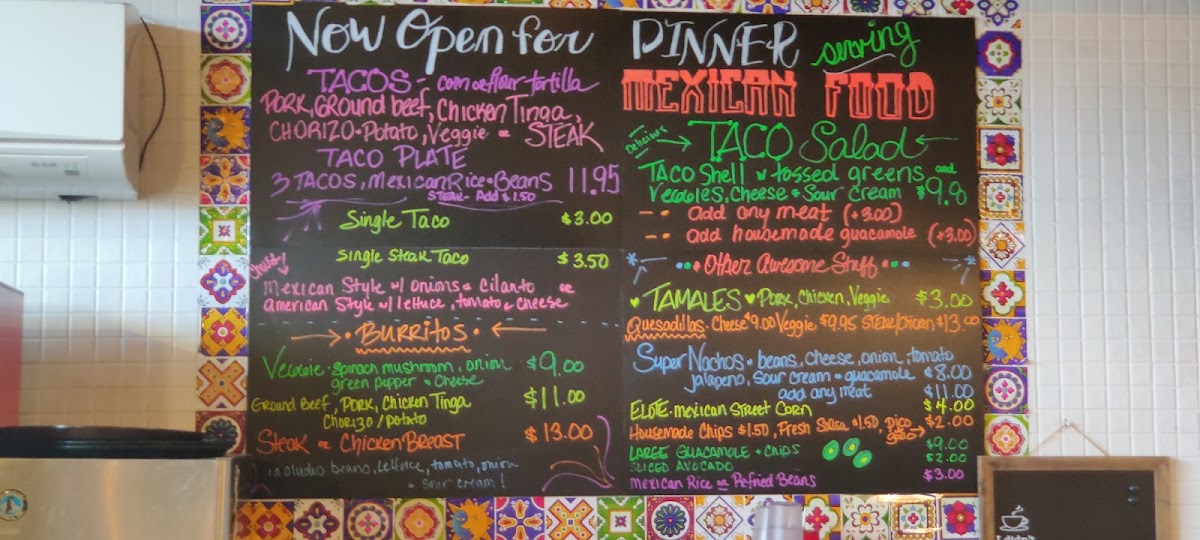 Now Open for DINNER serving
MEXICAN FOOD
TACOS - corn or flour tortilla
PORK, Ground beef, Chicken Tinga,
CHORIZO-Potato, Veggie or STEAK
TACO PLATE
3 TACOS, Mexican Rice + Beans 11.95
STEAK- Add $1.50
Single Taco $3.00
Single Steak Taco $3.50
Choose
Mexican Style w/ onions & cilantro or
American Style w/ lettuce, tomato & cheese
BURRITOS
Veggie - spinach mushroom, onion $9.00
green pepper & cheese
Ground Beef, Pork, Chicken Tinga $11.00
Chorizo/potato
Steak or Chicken Breast $13.00
includes beans, lettuce, tomato, onion
+ sour cream!
Delicious TACO Salad
TACO Shell w tossed greens and
Veggies, Cheese + Sour Cream $9.
-- add any meat (+3.00)
-- add housemade guacamole (+3.00)
Other Awesome Stuff
TAMALES Pork, Chicken, Veggie $3.00
Quesadillas - Cheese $9.00 Veggie $9.95 STEAK/Chicken $13.00
Super Nachos - beans, cheese, onion, tomato
jalapeno, sour cream & guacamole $8.00
add any meat $11.00
ELOTE - mexican Street Corn $4.00
Housemade Chips $1.50, Fresh Salsa $1.50, Pico gallo $2.00
LARGE GUACAMOLE + CHIPS $9.00
SLICED AVOCADO $2.00
mexican Rice or Refried Beans $3.00
I didn't